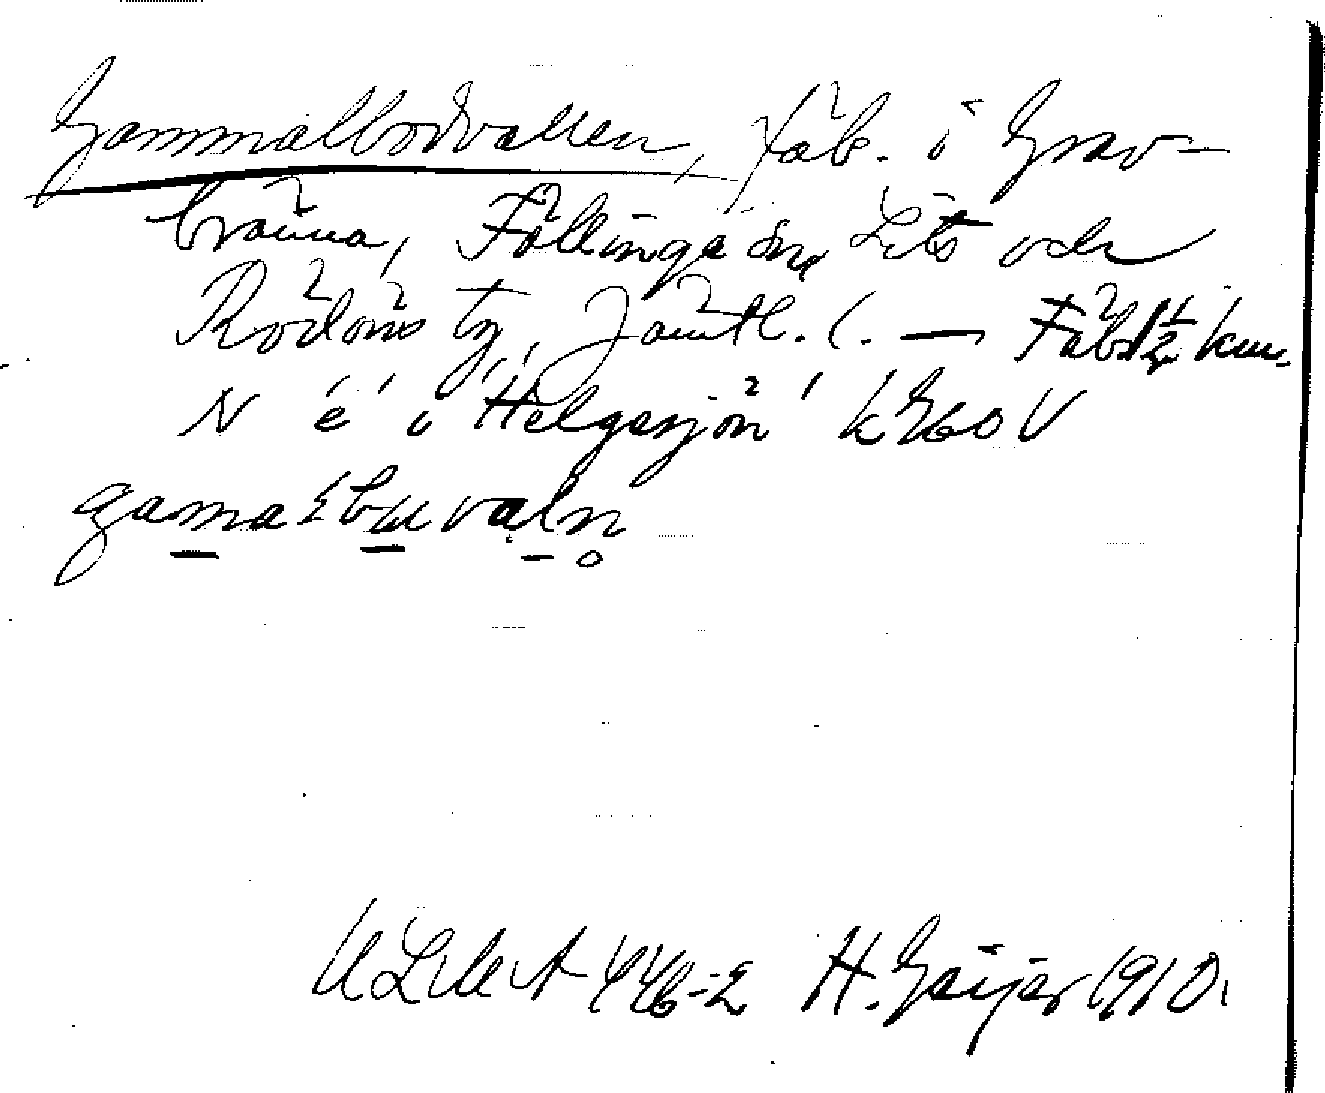 Gammalbodvallen, fäb. i Grav-
bränna, Föllinge sn, Lits och
Rödöns tg, Jämtl. l. — Fäb 1½ km
N é i Helgesjön k 960 V
gamaɫbuvaln
ULMA 446:2 H. Geijer 1910.